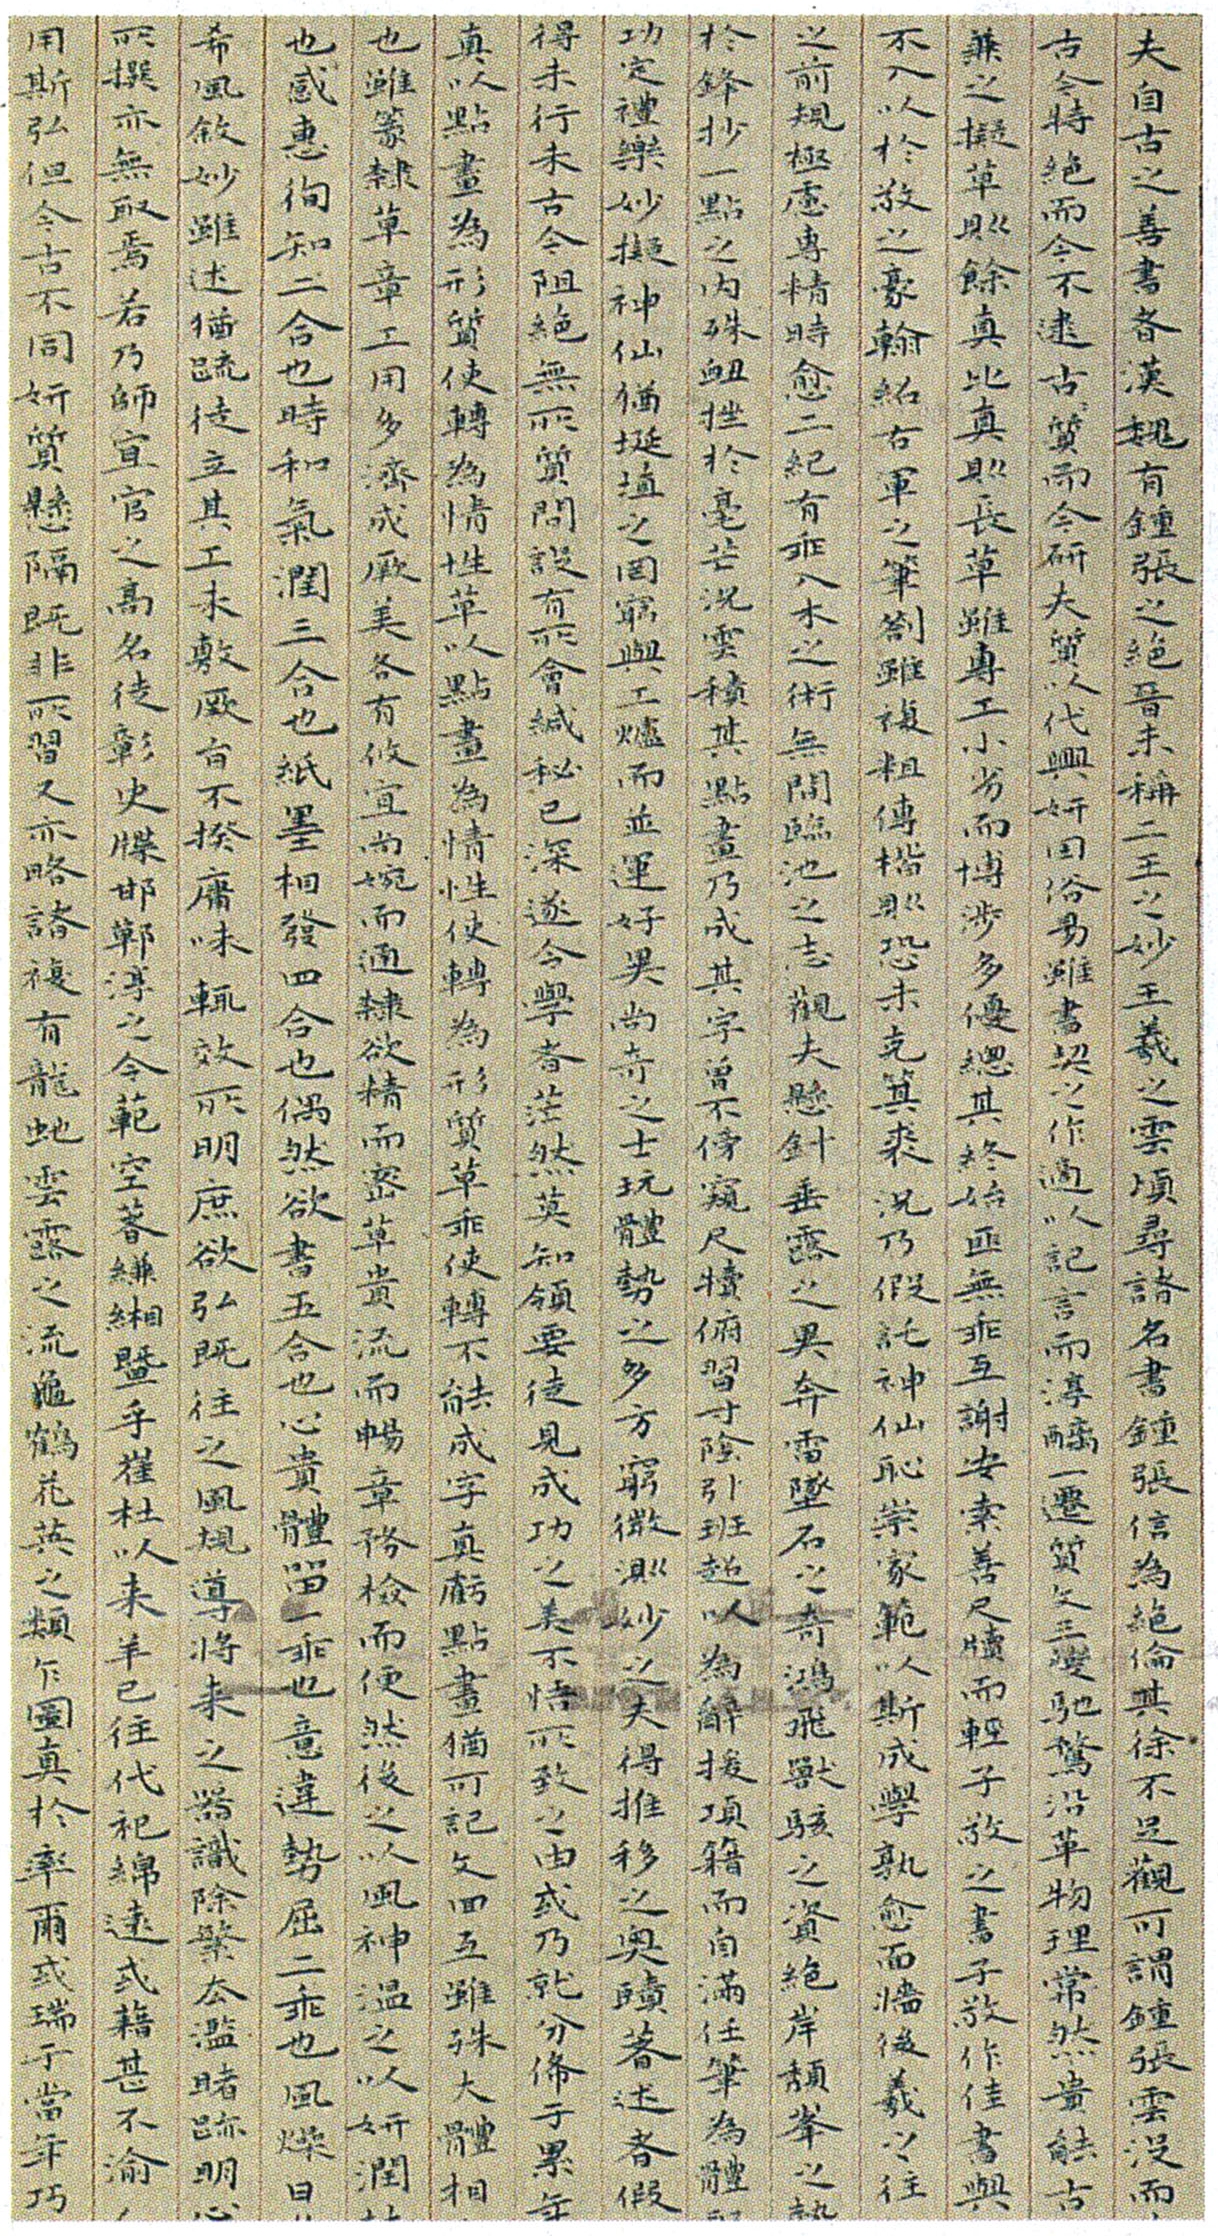 夫自古之善書者漢魏有鍾張之絕晉末稱二王之妙王羲之雲頃尋諸名書鍾張信為絕倫其徐不足觀可謂鍾張雲沒而
古今特絕而今不逮古質而今研夫質以代興妍因俗易雖書契之作適以記言而淳醨一遷質文三變馳騖沿革物理常然貴能古
兼之擬草則餘真比真則長草雖專工小劣而博涉多優總其終始匪無乖互謝安素善尺牘而輕子敬之書子敬作佳書與
不入以於敬之豪翰紹右軍之筆劄雖複粗傳楷則恐未克箕裘況乃假託神仙恥崇家範以斯成學孰愈面牆後羲之往
之前規極慮專精時愈二紀有乖入木之術無間臨池之志觀夫懸針垂露之異奔雷墜石之奇鴻飛獸駭之資絕岸頹峯之勢
於鋒抄一點之內殊衄挫於毫芒況雲積其點畫乃成其字曾不傍窺尺牘俯習寸陰引班超以為辭援項籍而自滿任筆為體
功定禮樂妙擬神仙猶埏埴之罔窮與工爐而並運好異尚奇之士玩體勢之多方窮微測妙之夫得推移之奧賾著述者假
得未行未古今阻絕無所質問設有所會緘秘已深遂令學者茫然莫知領要徒見成功之美不悟所致之由或乃就分佈于累年
真以點畫為形質使轉為情性草以點畫為情性使轉為形質草乖使轉不能成字真虧點畫猶可記文回互雖殊大體相
也雖篆隸草章工用多濟成厥美各有攸宜尚婉而通隸欲精而密草貴流而暢章務檢而便然後之以風神溫之以妍潤
也感惠徇知二合也時和氣潤三合也紙墨相發四合也偶然欲書五合也心貴體留一乖也意違勢屈二乖也風燥日
希風敘妙雖述猶疏徒立其工未敷厥旨不揆庸昧輒效所明庶欲弘既往之風規導將来之器識除繁去濫睹跡明心
所撰亦無取焉若乃師宜官之高名徒彰史牒邯鄲淳之令範空著縑緗暨乎崔杜以来羊已往代祀綿遠或籍甚不渝
用斯弘但今古不同妍質懸隔既非所習又亦略諸複有龍虵雲露之流龜鶴花英之類乍圖真於率爾或瑞于當年巧